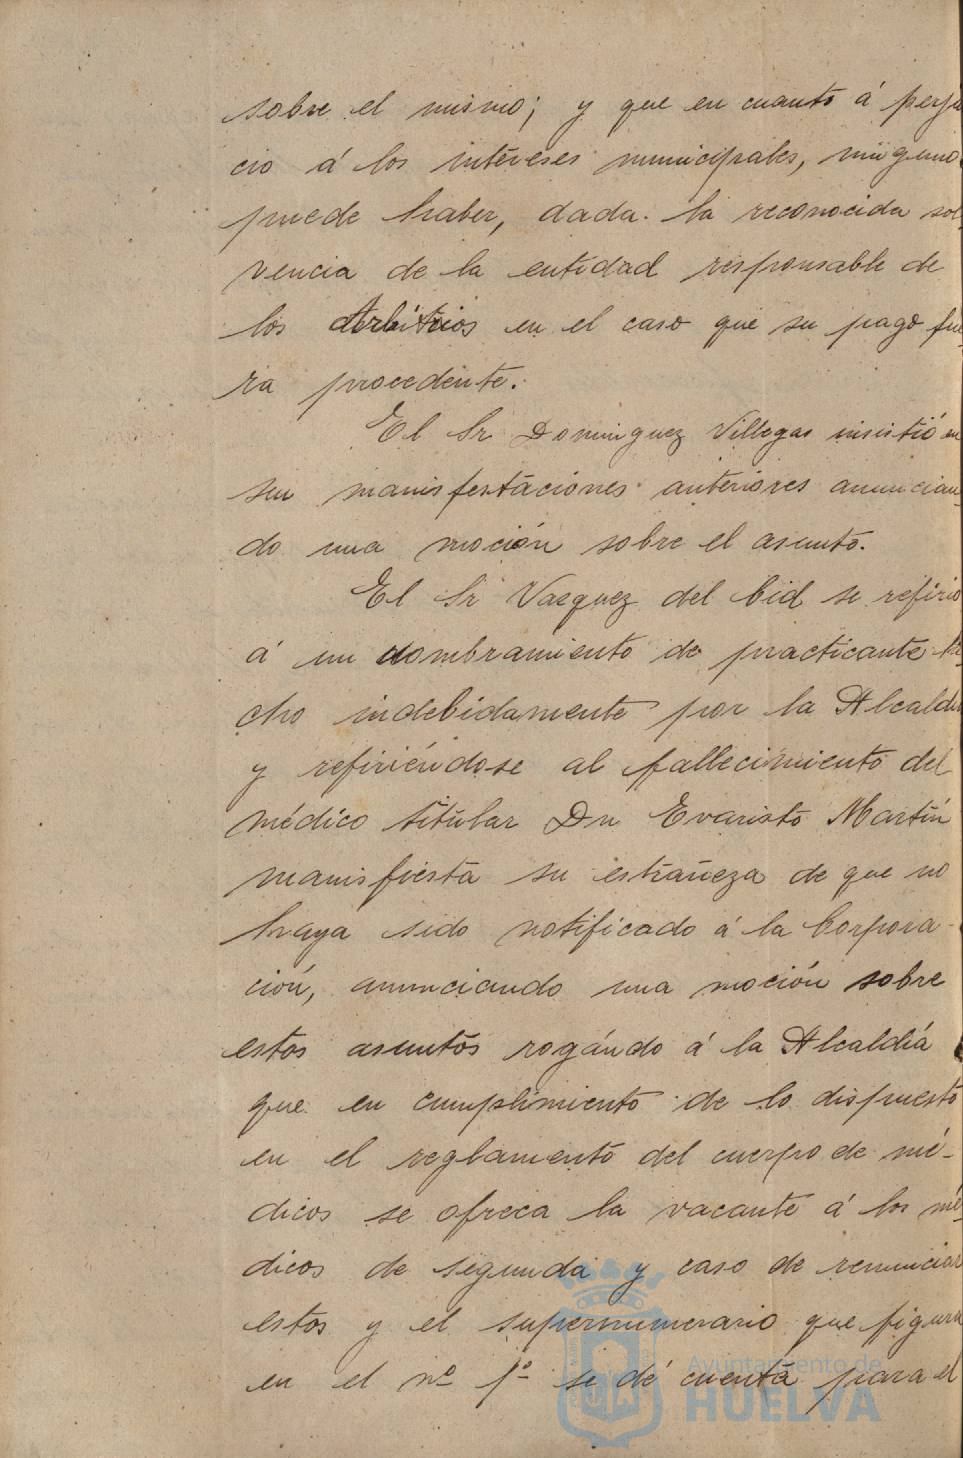 sobre el mismo; y que en cuanto á perjui
cio á los intereses municipales, ninguno
puede haber, dada la reconocida sol-
vencia de la entidad responsable de
los Arbitrios en el caso que su pago fue-
ra procedente.
El Sr Dominguez Villegas insistió en
sus manifestaciones anteriores anuncian-
do una moción sobre el asunto.
El Sr Vazquez del Cid se refirió
á un nombramiento de practicante he-
cho indebidamente por la Alcaldia
y refiriéndose al fallecimiento del
médico titular Dn Evaristo Martín
manifiesta su estrañeza de que no
haya sido notificado á la Corpora-
ción, anunciando una moción sobre
estos asuntos rogándo á la Alcaldía
que en cumplimiento de lo dispuesto
en el reglamento del cuerpo de mé-
dicos se ofreca la vacante á los mé-
dicos de segunda y caso de renunciar
estos y el supernumerario que figura
en el nº 1º se dé cuenta para el
Ayuntamiento de
HUELVA